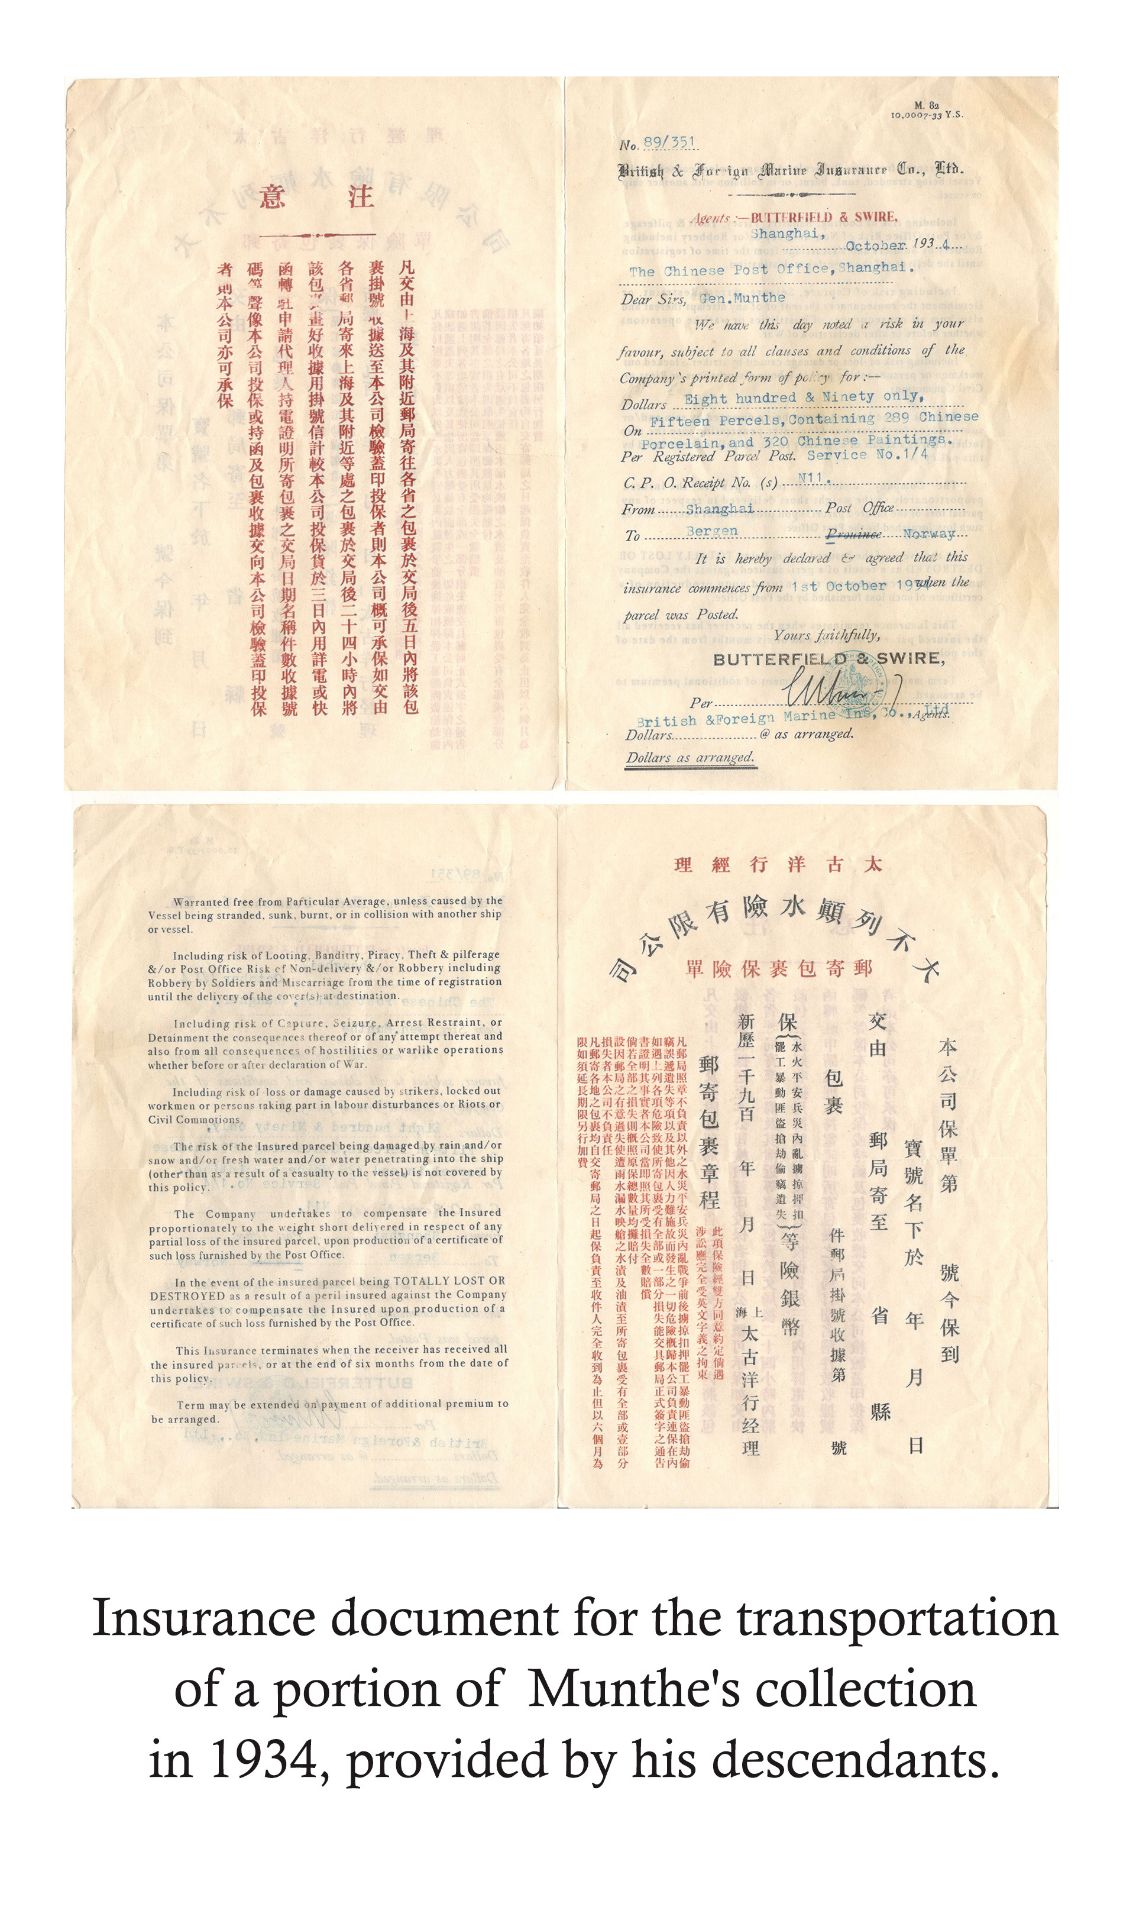 注意
凡交由上海及其附近郵局寄往各省之包裹於交局後五日內將該包
裹掛號收據送至本公司檢驗蓋印投保者則本公司概可承保如交由
各省郵局寄來上海及其附近等處之包裹於交局後二十四小時內將
該包裹畫好收據用掛號信計較本公司投保貨於三日內用詳電或快
函轉駐申請代理人持電證明所寄包裹之交局日期名稱件數收據號
碼等聲像本公司投保或持函及包裹收據交向本公司檢驗蓋印投保
者則本公司亦可承保
M. 82
10,0007-33 Y.S.
No. 89/351
British & Foreign Marine Insurance Co., Ltd.
Agents :—BUTTERFIELD & SWIRE,
Shanghai, October 1934
The Chinese Post Office, Shanghai.
Dear Sirs, Gen.Munthe
We have this day noted a risk in your
favour, subject to all clauses and conditions of the
Company's printed form of policy for :—
Dollars Eight hundred & Ninety only,
On Fifteen Percels, Containing 289 Chinese
Porcelain, and 320 Chinese Paintings.
Per Registered Parcel Post. Service No.1/4
C. P. O. Receipt No. (s) N11.
From Shanghai Post Office
To Bergen Province Norway
It is hereby declared & agreed that this
insurance commences from 1st October 1934 when the
parcel was Posted.
Yours faithfully,
BUTTERFIELD & SWIRE,
Per
British &Foreign Marine Ins, Co., Ltd Agents.
Dollars @ as arranged.
Dollars as arranged.
Warranted free from Particular Average, unless caused by the
Vessel being stranded, sunk, burnt, or in collision with another ship
or vessel.
Including risk of Looting, Banditry, Piracy, Theft & pilferage
&/or Post Office Risk of Non-delivery &/or Robbery including
Robbery by Soldiers and Miscarriage from the time of registration
until the delivery of the cover(s) at destination.
Including risk of Capture, Seizure, Arrest Restraint, or
Detainment the consequences thereof or of any attempt thereat and
also from all consequences of hostilities or warlike operations
whether before or after declaration of War.
Including risk of loss or damage caused by strikers, locked out
workmen or persons taking part in labour disturbances or Riots or
Civil Commotions.
The risk of the Insured parcel being damaged by rain and/or
snow and/or fresh water and/or water penetrating into the ship
(other than as a result of a casualty to the vessel) is not covered by
this policy.
The Company undertakes to compensate the Insured
proportionately to the weight short delivered in respect of any
partial loss of the insured parcel, upon production of a certificate of
such loss furnished by the Post Office.
In the event of the insured parcel being TOTALLY LOST OR
DESTROYED as a result of a peril insured against the Company
undertakes to compensate the Insured upon production of a
certificate of such loss furnished by the Post Office.
This Insurance terminates when the receiver has received all
the insured parcels, or at the end of six months from the date of
this policy.
Term may be extended on payment of additional premium to
be arranged.
太古洋行經理
大不列顛水險有限公司
郵寄包裹保險單
本公司保單第 號今保到
寶號名下於 年 月 日
交由 郵局寄至 省 縣
包裹 件郵局掛號收據第 號
保(水火平安兵災內亂擄掠押扣
罷工暴動匪盜搶劫偷竊遺失)等險銀幣
新歷一千九百 年 月 日 上海 太古洋行经理
郵寄包裹章程 此項保險經雙方同意約定倘遇
涉訟應完全受英文字義之拘束
凡郵局照章不負責以外之水災平安兵災內亂戰爭前後擄掠扣押罷工暴動匪盜搶劫偷
竊誤遞遺失等項以及其他因人力難施故而發生之一切危險概歸本公司負責連保在內
如遇上列各項危險致使所寄包裹受有全部或一部分損失能交具郵局正式簽字之通告
書證明其事實者本公司當即照其所受損失全數賠償
倘若全部之損失則概照原保總數量均攤賠付
設因郵局之有意過失使遭雨水漏水映艙之水漬及油漬至所寄包裹受有全部或壹部分
損失者本公司不負責任
凡郵寄各地之包裹均自交寄郵局之日起保負責至收件人完全收到為止但以六個月為
限如須延長期限另行加費
Insurance document for the transportation
of a portion of Munthe's collection
in 1934, provided by his descendants.